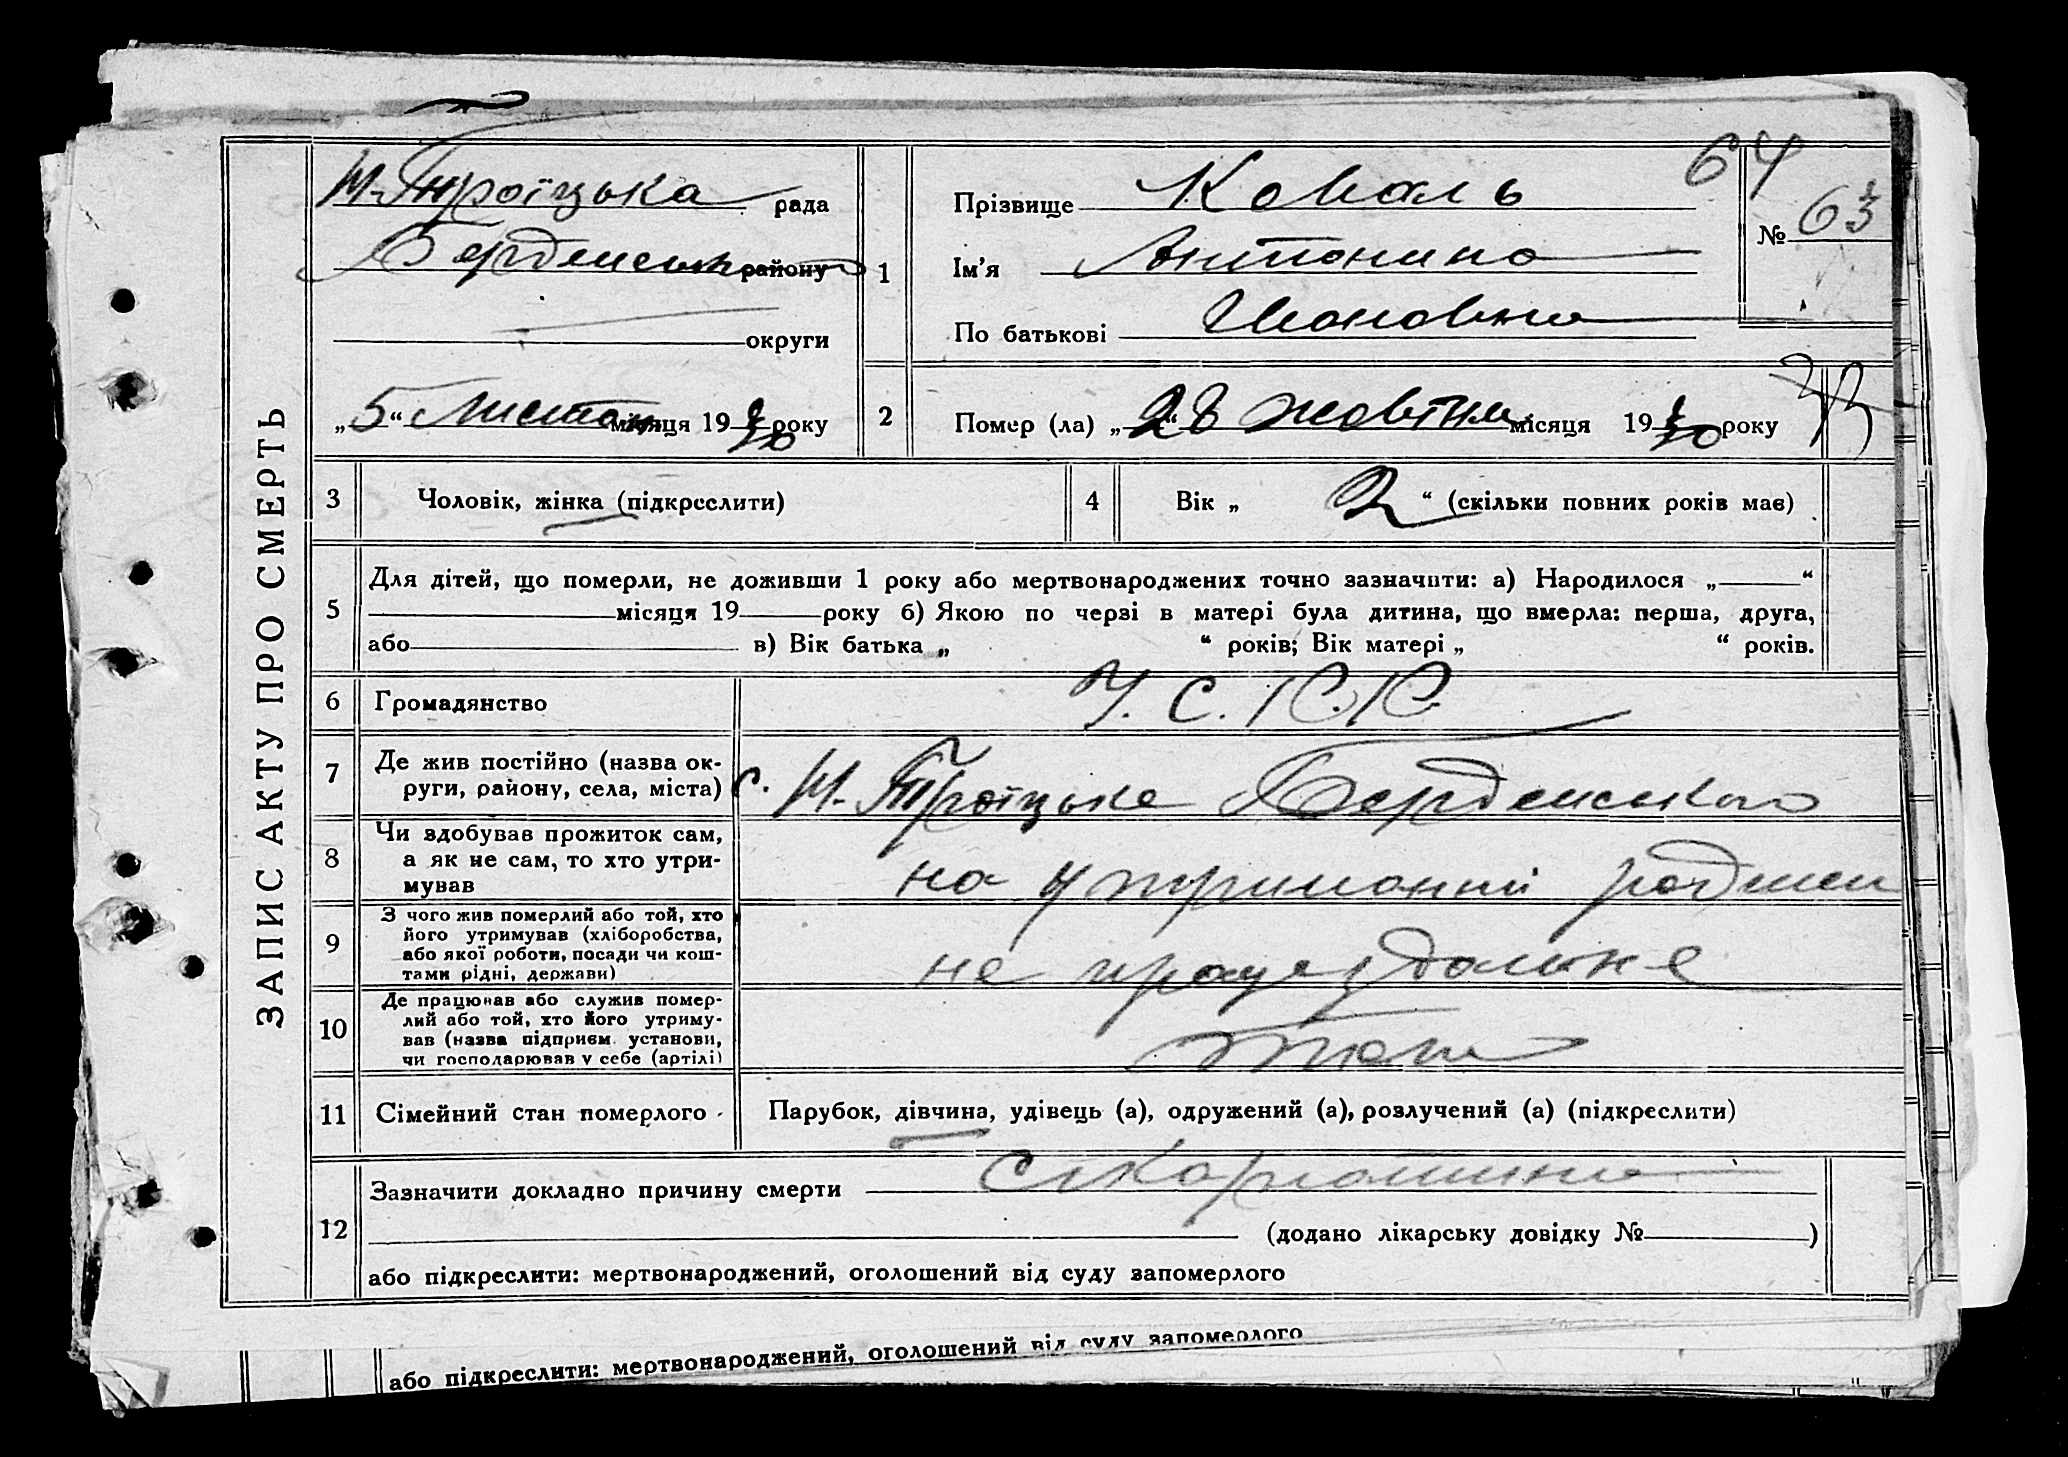 ЗАПИС АКТУ ПРО СМЕРТЬ
Н-Троїцька рада
Бердянськ району
округи
„5“ Листоп місяця 1930 року
1
Прізвище Коваль
Ім'я Антонина
По батькові Ивановна
64
№ 63
2
Помер (ла) „28“ жовтня місяця 1930 року
3 Чоловік, жінка (підкреслити)
4 Вік „2“ (скільки повних років має)
5
Для дітей, що померли, не доживши 1 року або мертвонароджених точно зазначити: а) Народилося „ “
місяця 19 року б) Якою по черзі в матері була дитина, що вмерла: перша, друга,
або в) Вік батька „ “ років; Вік матері „ “ років.
6 Громадянство У.С.Р.Р.
7 Де жив постійно (назва ок-
руги, району, села, міста) с. Н-Троїцьке Бердянського
8 Чи здобував прожиток сам,
а як не сам, то хто утри-
мував на утриманні родини
9 З чого жив померлий або той, хто
його утримував (хліборобства,
або якої роботи, посади чи кош-
тами рідні, держави) не працездатне
10 Де працював або служив помер-
лий або той, хто його утриму-
вав (назва підприєм. установи,
чи господарював у себе (артілі)
11 Сімейний стан померлого Парубок, дівчина, удівець (а), одружений (а), розлучений (а) (підкреслити)
12
Зазначити докладно причину смерти скарлатина
(додано лікарську довідку № )
або підкреслити: мертвонароджений, оголошений від суду запомерлого
або підкреслити: мертвонароджений, оголошений від суду запомерлого